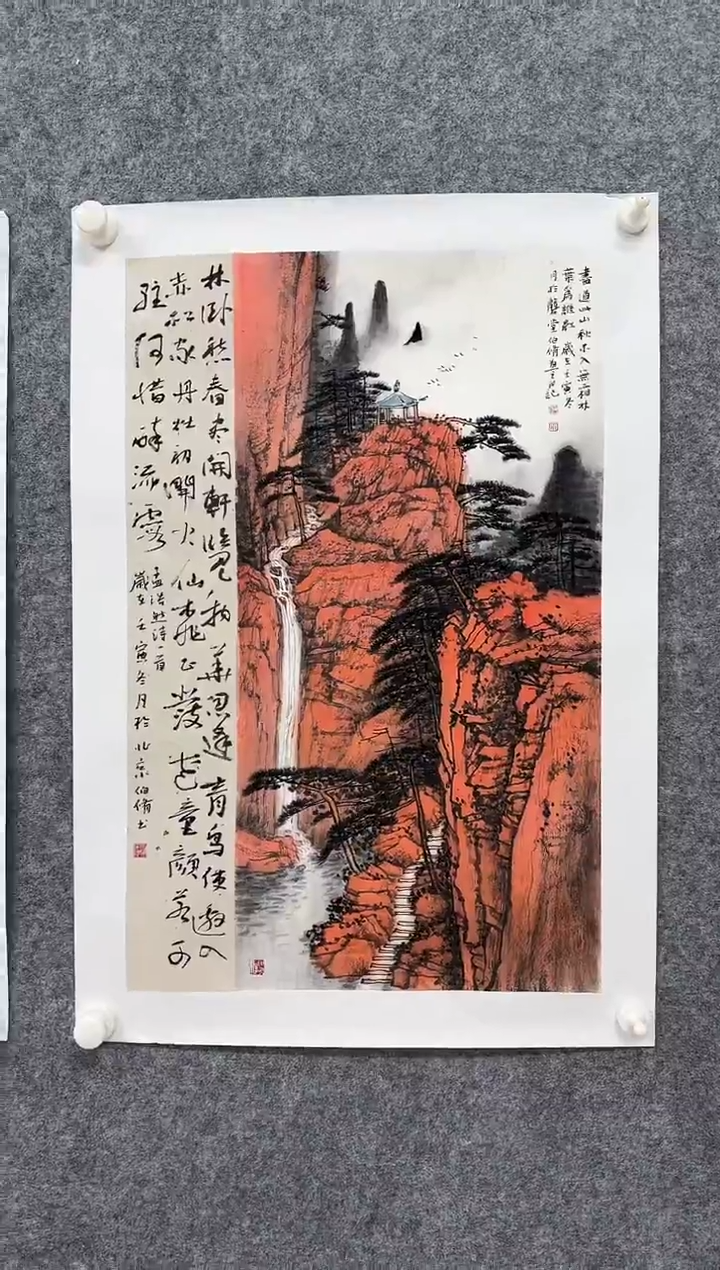 道此山秋未入無霜林
葉為誰紅 歲在壬寅冬
月於堂伯脩並記
林卧愁春尽開軒覽物華忽逢青鳥使邀入
赤松家丹灶初開火仙桃正發花童顏若可
駐何惜醉流霞
孟浩然詩一首
歲在壬寅冬月於北京伯脩書